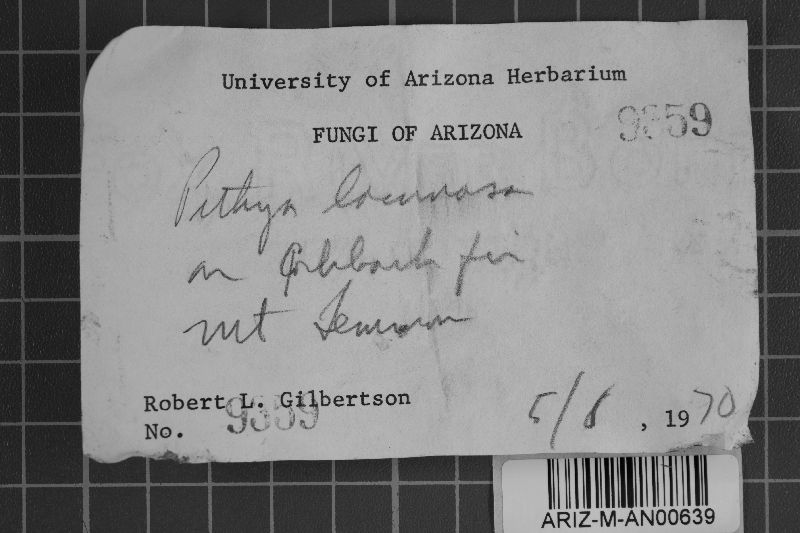 University of Arizona Herbarium
FUNGI OF ARIZONA
9359
Pithya lacunosa
on Corkbark fir
Mt Lemmon
Robert L. Gilbertson
No. 9359
5/8, 1970
ARIZ-M-AN00639